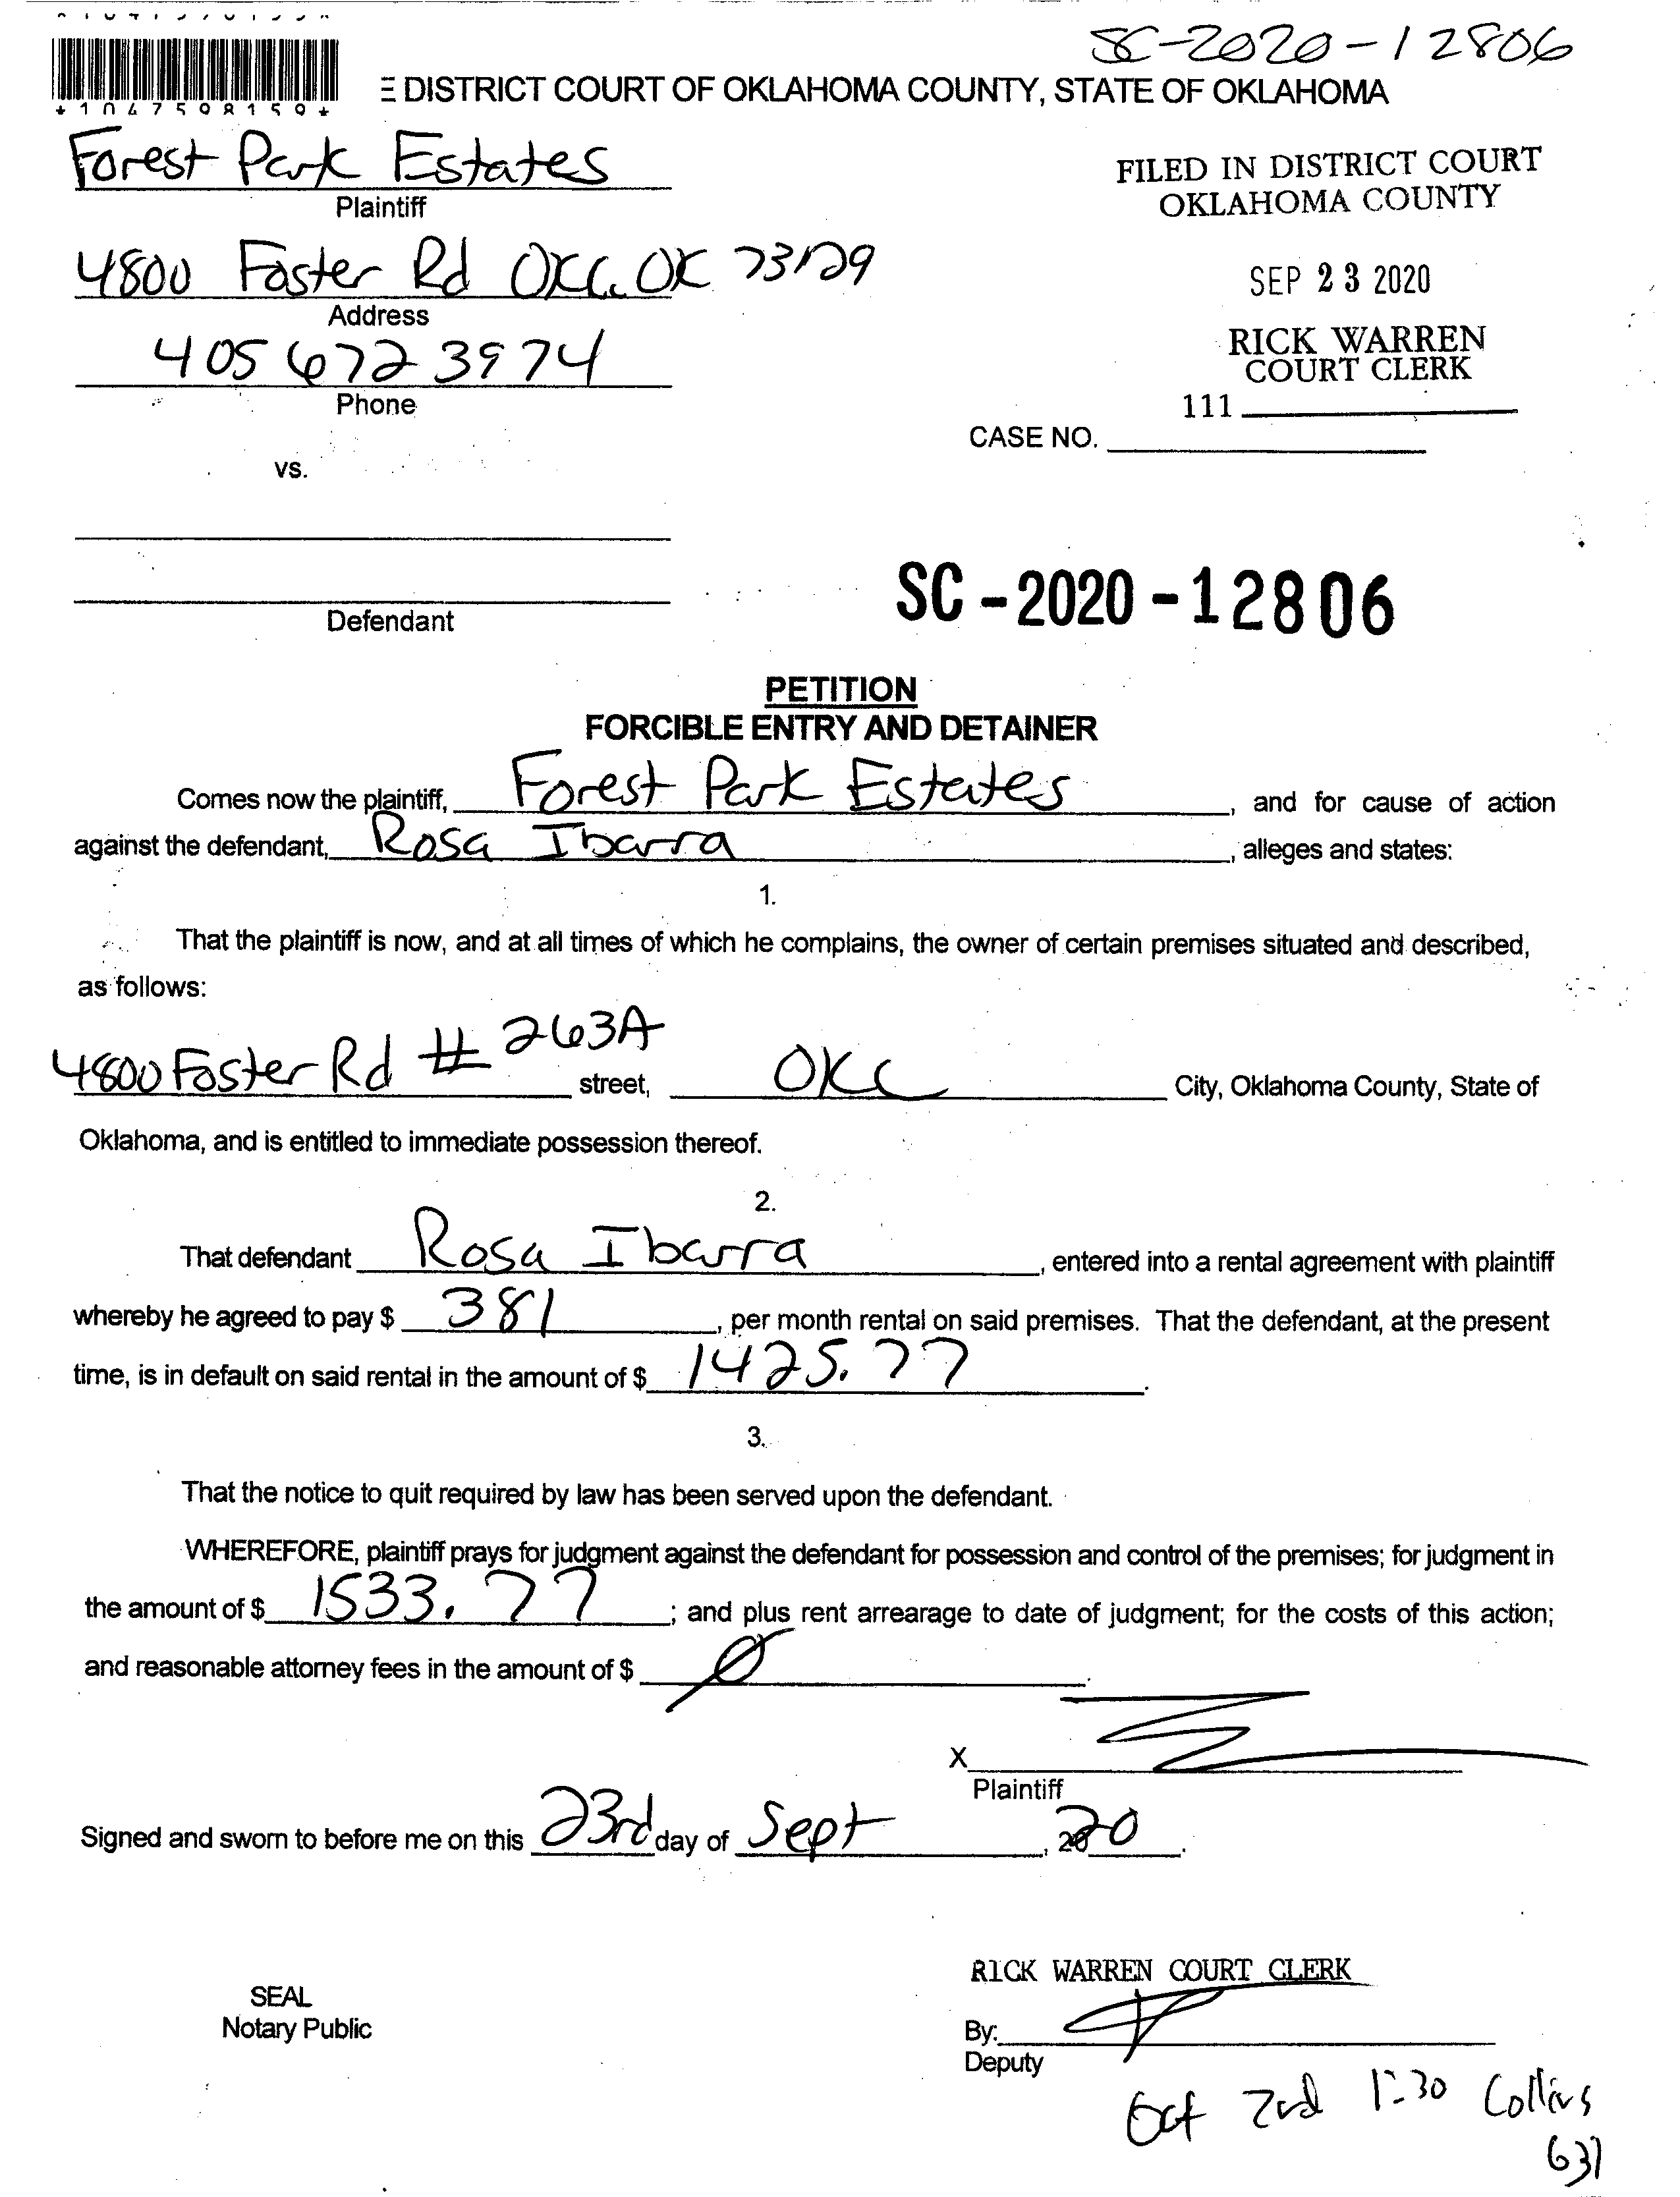 SC-2020-12806
DISTRICT COURT OF OKLAHOMA COUNTY, STATE OF OKLAHOMA
*1047598159*
Forest Park Estates
Plaintiff
FILED IN DISTRICT COURT
OKLAHOMA COUNTY
4800 Foster Rd OKC, OK 73129
Address
SEP 23 2020
405 672 3974
Phone
RICK WARREN
COURT CLERK
111
CASE NO.
vs.
Defendant
SC-2020-12806
PETITION
FORCIBLE ENTRY AND DETAINER
Comes now the plaintiff, Forest Park Estates, and for cause of action
against the defendant, Rosa Ibarra, alleges and states:
1.
That the plaintiff is now, and at all times of which he complains, the owner of certain premises situated and described,
as follows:
4800 Foster Rd # 263A street, OKC City, Oklahoma County, State of
Oklahoma, and is entitled to immediate possession thereof.
2.
That defendant Rosa Ibarra, entered into a rental agreement with plaintiff
whereby he agreed to pay $ 381, per month rental on said premises. That the defendant, at the present
time, is in default on said rental in the amount of $ 1425.77.
3.
That the notice to quit required by law has been served upon the defendant.
WHEREFORE, plaintiff prays for judgment against the defendant for possession and control of the premises; for judgment in
the amount of $ 1533.77; and plus rent arrearage to date of judgment; for the costs of this action;
and reasonable attorney fees in the amount of $ Ø.
X
Plaintiff
Signed and sworn to before me on this 23rd day of Sept, 2020.
RICK WARREN COURT CLERK
SEAL
Notary Public
By:
Deputy
Oct 2nd 1:30 Collins
631